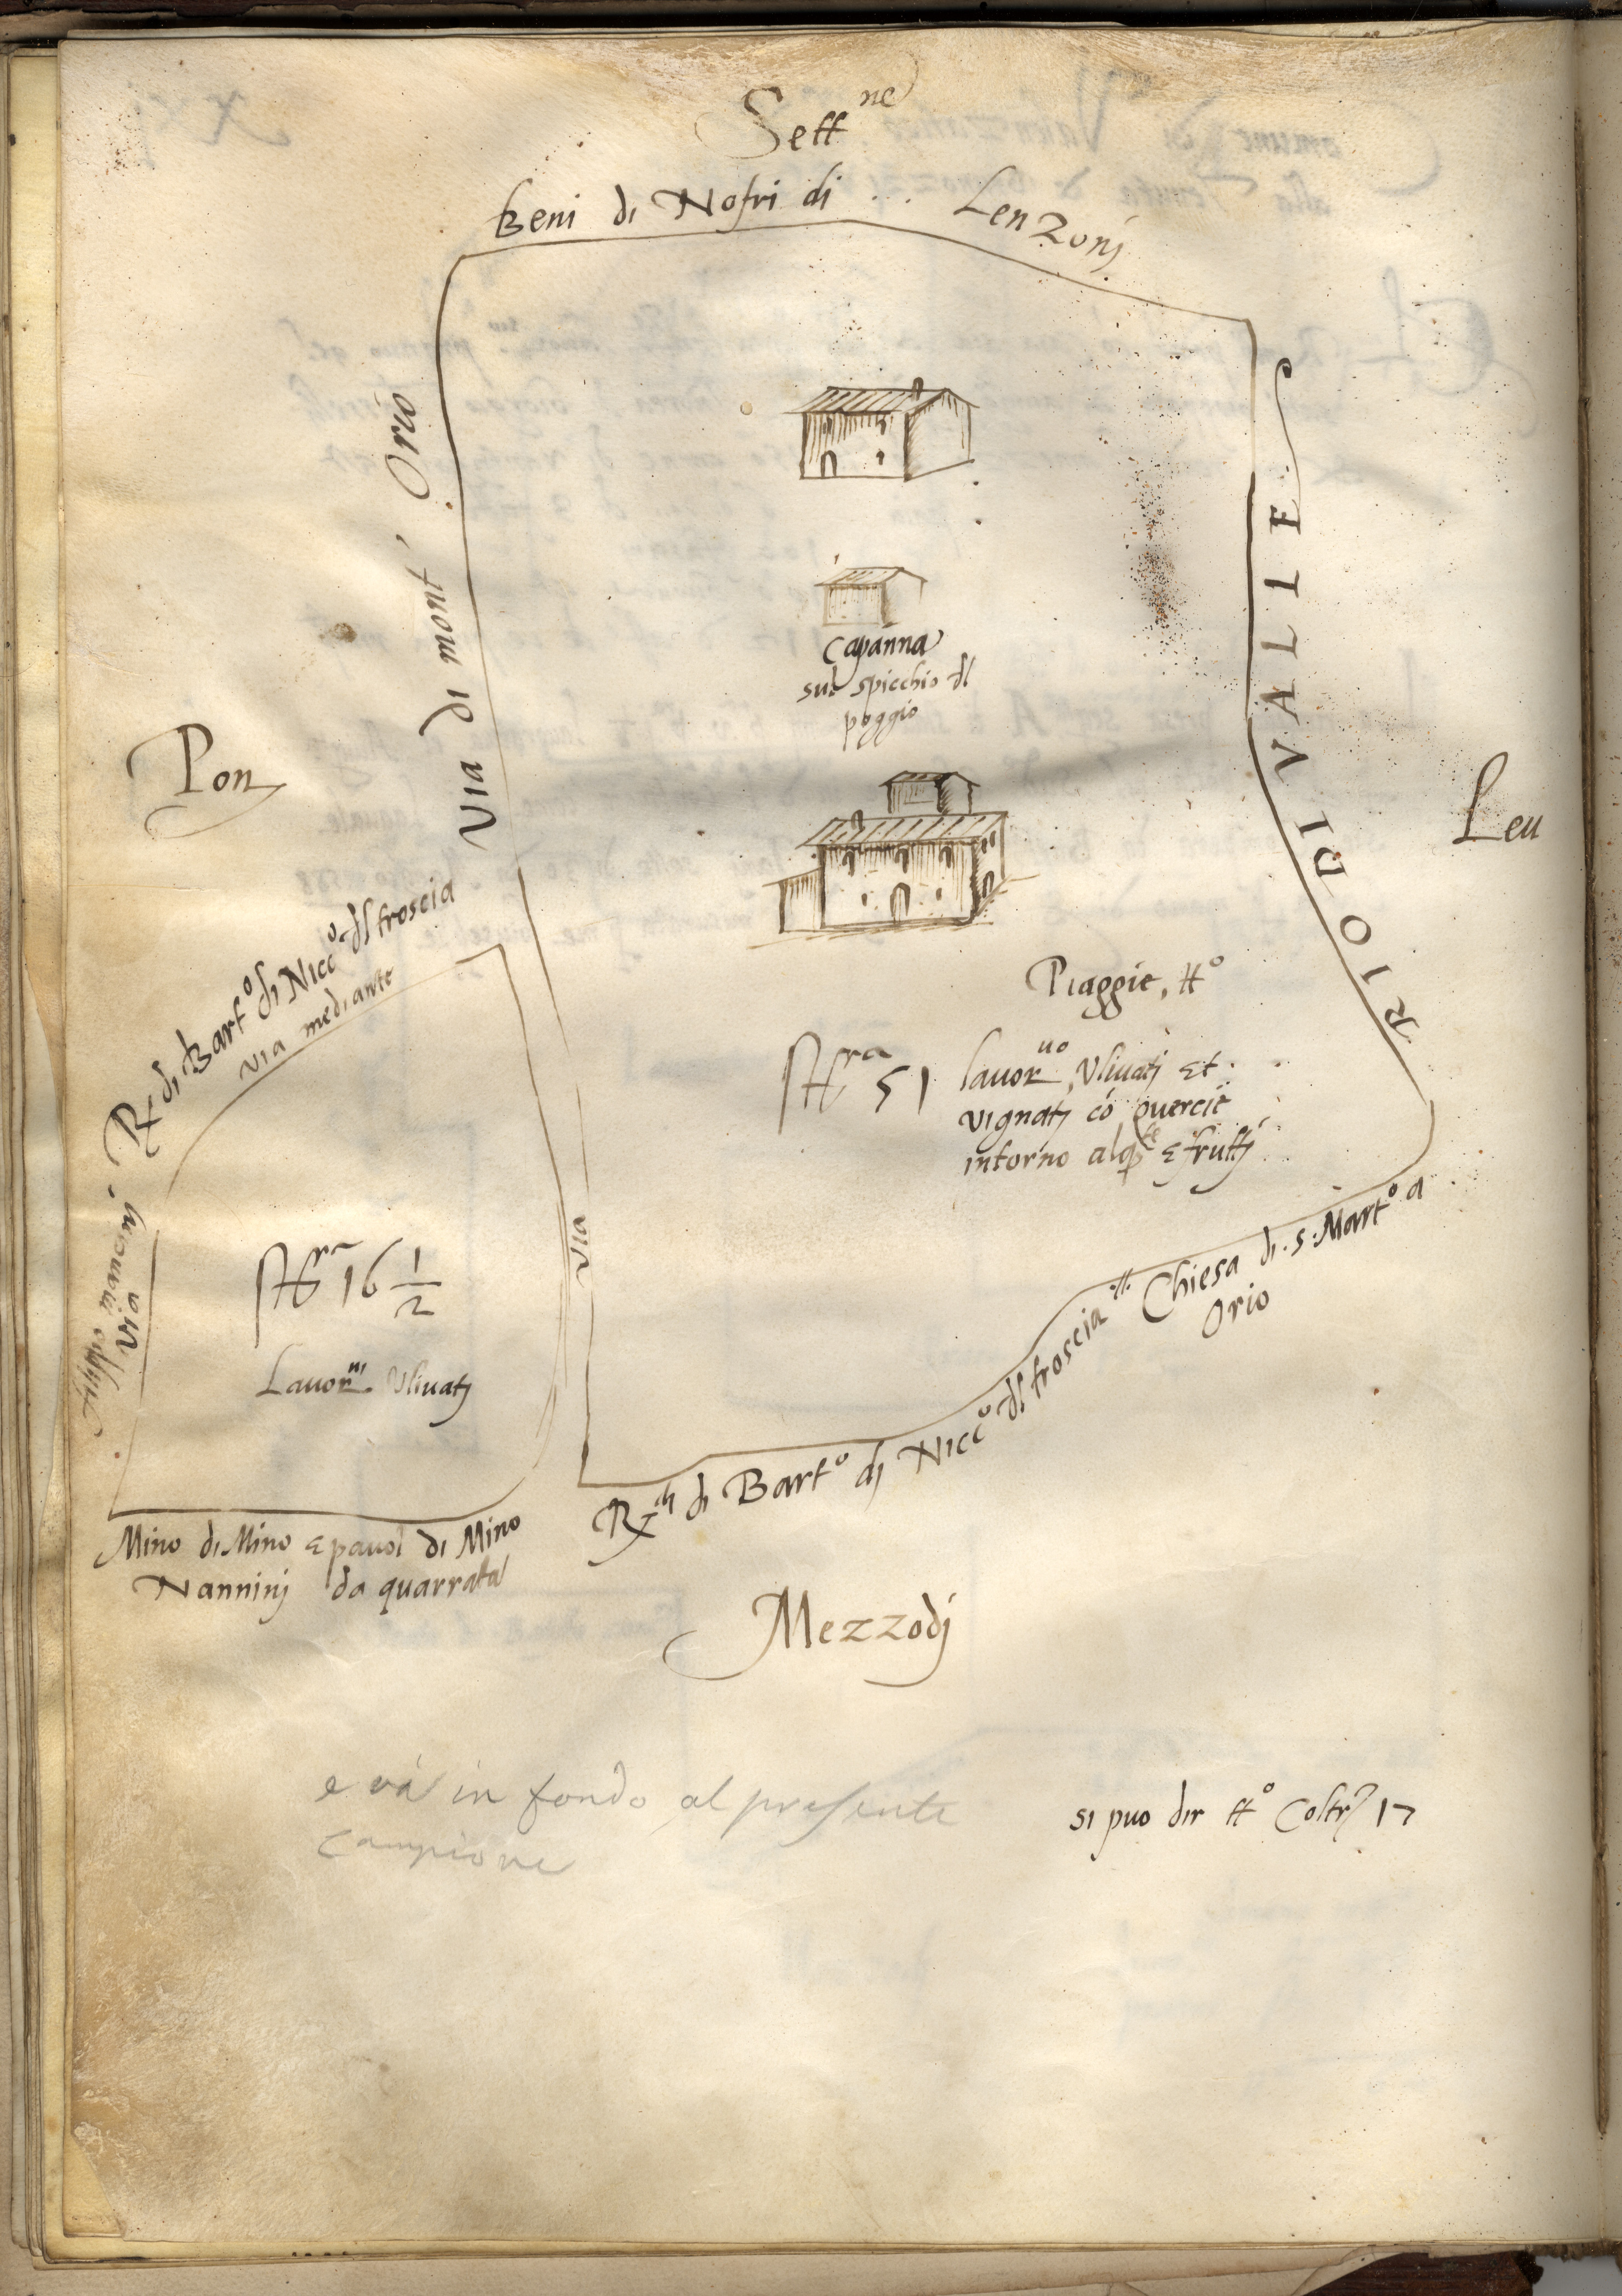 Sett^ne
Beni di Nofri di .. Lenzonj
Via di mont' Orio
RIO DI VALLE
Pon
Leu
Capanna
sul spicchio dl
poggio
di Bart^o di Nicc^o dl froscia
via mediante
Piaggie, tt^o
51 lauor^uo, Vliuatj et
vignatj có quercie
intorno alq^te e fruttj
via
16 1/2
Lauor^ni Vliuatj
via
Chiesa di s. Mart^o a
Orio
di Bart^o dj Nicc^o dl froscia
Mino di Mino e pauol di Mino
Nanninj da quarrata
Mezzodj
e và in fondo al presente
Campione
si puo dir tt^o Coltr 17